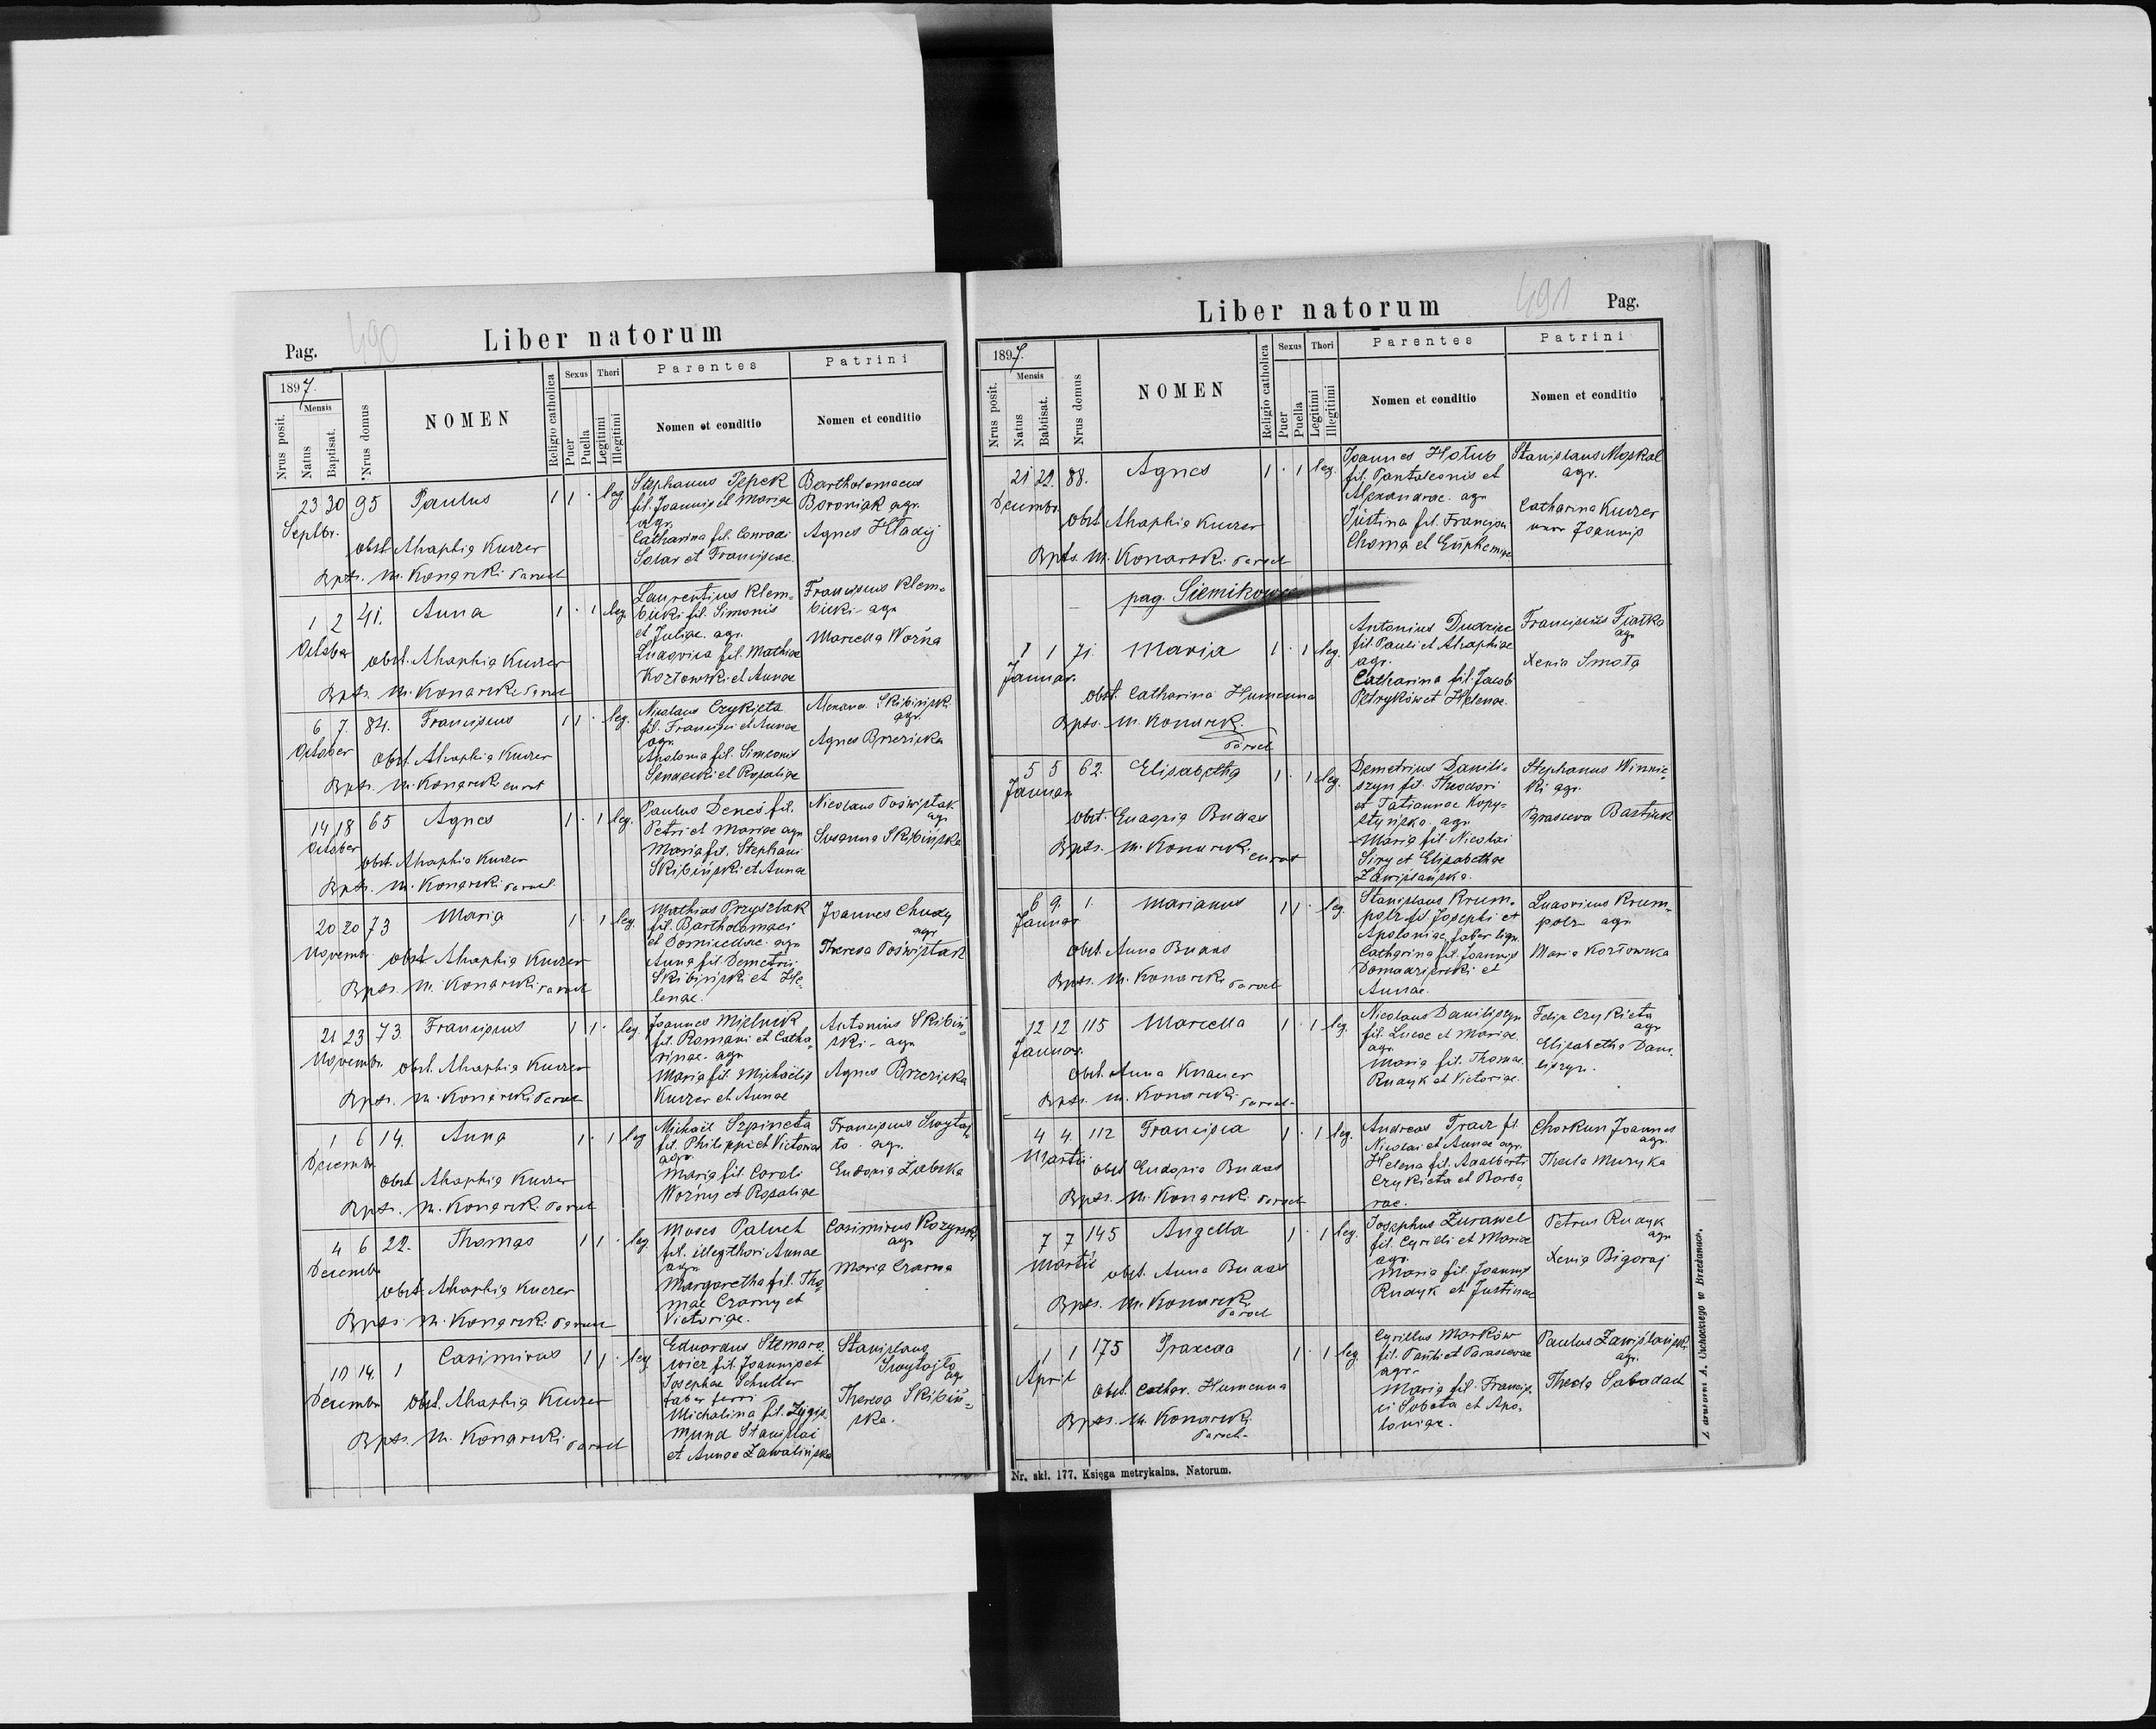 490
Pag.
Liber natorum
1897.
Nrus posit.
Mensis
Natus
Baptisat.
Nrus domus
NOMEN
Religio catholica
Sexus
Puer
Puella
Thori
Legitimi
Illegitimi
Parentes
Nomen et conditio
Patrini
Nomen et conditio
23 30 95 Paulus 1 1 · leg.
Septbr.
obst. Ahaphia Kurzer
Bpts. M. Konarski Paroch
Stephanus Pepek
fil. Joannis et Mariae
agr.
Catharina fil. Conradi
Solar et Franciscae
Bartholomaeus
Boroniak agr.
Agnes Hładij
1 2 41. Anna 1 · 1 leg.
October
obst. Ahaphia Kurzer
Bpts. M. Konarski Paroch
Laurentius Klem-
bicki fil. Simonis
et Juliae. agr.
Ludovica fil. Mathiae
Kozłowski et Annae
Franciscus Klem-
bicki - agr.
Marcella Woźna
6 7. 84. Franciscus 1 1 · leg.
October
obst. Ahaphia Kurzer
Bpts. M. Konarski curat
Nicolaus Czykieta
fil. Francisci et Annae
agr.
Apolonia fil. Simeonis
Sendecki et Rosaliae
Skibiński
agr.
Agnes Brzezicka
14 18 65 Agnes 1 · 1 leg.
October
obst. Ahaphia Kurzer
Bpts. M. Konarski Paroch.
Paulus Deneś fil.
Petri et Mariae agr.
Maria fil. Stephani
Skibiński et Annae
Nicolaus Poświstak
agr.
Susanna Skibińska
20 20 73 Maria 1 · 1 leg.
Novemb.
obst. Ahaphia Kurzer
Bpts. M. Konarski Paroch
Mathias Przysztak
fil. Bartholomaei
et Domicellae. agr.
Anna fil. Demetrii
Skibiński et He-
lenae.
Joannes Chudy
agr.
Theresa Poświstak
21 23 73. Franciscus 1 1 · leg.
Novembr.
obst. Ahaphia Kurzer
Bpts. M. Konarski Paroch
Joannes Mielnik
fil. Romani et Catha-
rinae. agr.
Maria fil. Michaëlis
Kurzer et Annae
Antonius Skibiń-
ski - agr.
Agnes Brzezicka
1 6 14. Anna 1 · 1 leg.
Decemb.
obst. Ahaphia Kurzer
Bpts. M. Konarski Paroch
Michael Szpineta
fil. Philippi et Victoriae
agr.
Maria fil. Caroli
Woźny et Rosaliae
Franciscus
to. agr.
Eudoxia Żabska
4 6 22. Thomas 1 1 · leg.
Decemb.
obst. Ahaphia Kurzer
Bpts. M. Konarski Paroch
Moses Paluch
fil. illeg. thori Annae
agr.
Margaretha fil. Tho-
mae Czarny et
Victoriae.
Casimirus
agr.
Maria Czarna
10 14. 1 Casimirus 1 1 · leg.
Decembr
obst. Ahaphia Kurzer
Bpts. M. Konarski Paroch
Eduardus Stemaro-
wicz fil. Joannis et
Josephae Schuller
faber ferri
Michalina fil. Zygis.
mund Stanislai
et Annae Zawalińska
Stanislaus
agr.
Theresa Skibiń-
ska.
491
Liber natorum
Pag.
1897.
Nrus posit.
Mensis
Natus
Babtisat.
Nrus domus
NOMEN
Religio catholica
Sexus
Puer
Puella
Thori
Legitimi
Illegitimi
Parentes
Nomen et conditio
Patrini
Nomen et conditio
21 22. 88. Agnes 1 · 1 leg.
Decembr.
obst. Ahaphia Kurzer
Bpts. M. Konarski Paroch
Joannes Hołub
fil. Pantaleonis et
Alexandrae. agr.
Justina fil. Francisci
Choma et Euphemiae
Stanislaus Moskal
agr.
Catharina Kurzer
uxor Joannis
pag. Siemikowce
1 1 71. Maria 1 · 1 leg.
Januar.
obst. Catharina Humenna
Bpts. M. Konarski
Paroch
Antonius
fil. Pauli et Ahaphiae
agr.
Catharina fil. Jacobi
Petryków et Helenae.
Franciscus Fiałka
agr.
Xenia Smoła
5 5 62. Elisabetha 1 · 1 leg.
Januar.
obst. Eudoxia Budas
Bpts. M. Konarski curat
Demetrius Danili-
szyn fil. Theodori
et Tatiannae Kopy-
styńska. agr.
Maria fil. Nicolai
Siry et Elisabethae
Zawiślańska.
Stephanus Winnic-
ki agr.
Parasceva Bastiuk
6 9. 1. Marianus 1 1 · leg.
Januar
obst. Anna Budas
Bpts. M. Konarski Paroch
Stanislaus Krum-
polz fil. Josephi et
Apoloniae faber lign.
Catharina fil. Joannis
Domadzierski et
Annae.
Ludovicus Krum-
polz agr.
Maria Kozłowska
12 12 115 Marcella 1 · 1 leg.
Januar.
obst. Anna Knauer
Bpts. M. Konarski Paroch.
Nicolaus Daniliszyn
fil. Lucae et Mariae.
agr.
Maria fil. Thomae
Rudyk et Victoriae.
Felix Czykieta
agr.
Elisabetha Dani-
liszyn.
4 4. 112 Francisca 1 · 1 leg.
Martii
obst. Eudoxia Budas
Bpts. M. Konarski Paroch
Andreas Tracz fil.
Nicolai et Annae agr.
Helena fil. Adalberti
Czykieta et Barba-
rae.
Chorkun Joannes
agr.
Thecla Muzyka
7 7 145 Angella 1 · 1 leg.
Martii
obst. Anna Budas
Bpts. M. Konarski
Paroch
Josephus Żurawel
fil. Cyrilli et Mariae
agr.
Maria fil. Joannis
Rudyk et Justinae
Petrus Rudyk
agr.
Xenia Bigoraj
1 1 175 Praxeda 1 · 1 leg.
April
obst. Cathar. Humenna
Bpts. M. Konarski
Paroch.
Cyrillus Marków
fil. Pauli et Parascevae
agr.
Maria fil. Francis-
ci Sobota et Apo-
loniae.
Paulus Zawiślański
agr.
Thecla Sabadach
Z drukarni A. Uschockiego w Brzeżanach.
Nr. skł. 177. Księga metrykalna. Natorum.